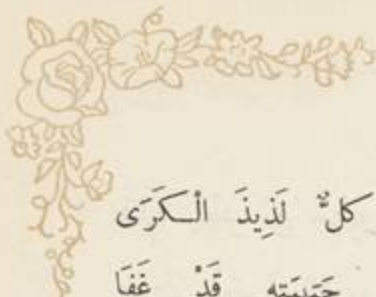 كلٌّ لَذِيذَ الْكَرَى
حَبِيبَتِهِ قَدْ غَفَا